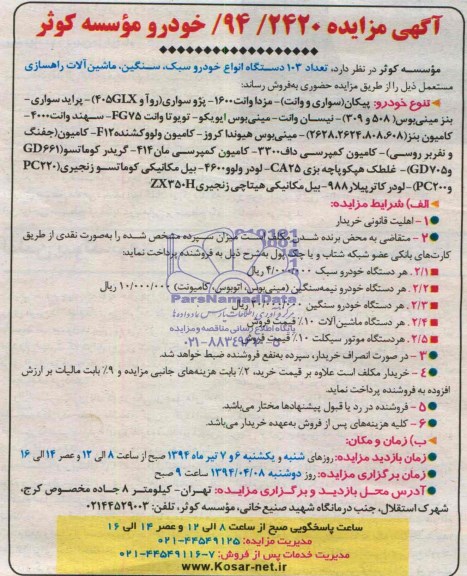 آگهی مزایده ۲۴۲۰/ ۹۴/ خودرو مؤسسه کوثر
مؤسسه کوثر در نظر دارد، تعداد ۱۰۳ دستگاه انواع خودرو سبک، سنگین، ماشین آلات راهسازی
مستعمل ذیل را از طریق مزایده حضوری به‌فروش رساند:
تنوع خودرو: پیکان(سواری و وانت)- مزدا وانت۱۶۰۰- پژو سواری(روآ و ۴۰۵GLX)- پراید سواری-
بنز مینی‌بوس(۵۰۸ و ۳۰۹)- نیسان وانت- مینی‌بوس ایویکو- تویوتا وانت FG75- سهند وانت۴۰۰۰-
کامیون بنز(۲۶۲۸،۲۶۲۴،۸۰۸،۶۰۸)- مینی‌بوس هیوندا کروز- کامیون ولووکشندهF12- کامیون(جفنگ
و نفربر روسی)- کامیون کمپرسی داف۳۳۰۰- کامیون کمپرسی مان۴۱۴- گریدر کوماتسو(GD661
وGD705)- غلطک هپکوپاچه بزی CA25- لودر ولوو۴۶۰۰- بیل مکانیکی کوماتسو زنجیری(PC220
وPC200)- لودر کاترپیلار۹۸۸- بیل مکانیکی هیتاچی زنجیریZX350H
الف) شرایط مزایده:
۱- اهلیت قانونی خریدار
۲- متقاضی به محض برنده شدن مکلف است میزان سپرده مشخص شده را به‌صورت نقدی از طریق
کارت‌های بانکی عضو شبکه شتاب و یا چک پول به‌شرح ذیل به فروشنده پرداخت نماید:
۲/۱. هر دستگاه خودرو سبک ۴/۰۰۰/۰۰۰ ریال
۲/۲. هر دستگاه خودرو نیمه‌سنگین (مینی‌بوس، اتوبوس، کامیونت) ۱۰/۰۰۰/۰۰۰ ریال
۲/۳. هر دستگاه خودرو سنگین ریال
۲/۴. هر دستگاه ماشین آلات ۱۰٪ قیمت فروش
۲/۵. هر دستگاه موتور سیکلت ۱۰٪ قیمت فروش
۳- در صورت انصراف خریدار، سپرده به‌نفع فروشنده ضبط خواهد شد.
۴- خریدار مکلف است علاوه بر قیمت خرید، ۲٪ بابت هزینه‌های جانبی مزایده و ۹٪ بابت مالیات بر ارزش
افزوده به فروشنده پرداخت نماید.
۵- فروشنده در رد یا قبول پیشنهادها مختار می‌باشد.
۶- کلیه هزینه‌های پس از فروش به‌عهده خریدار می‌باشد.
ب) زمان و مکان:
زمان بازدید مزایده: روزهای شنبه و یکشنبه ۶ و ۷ تیر ماه ۱۳۹۴ صبح از ساعت ۸ الی ۱۲ و عصر ۱۴ الی ۱۶
زمان برگزاری مزایده: روز دوشنبه ۱۳۹۴/۰۴/۰۸ ساعت ۹ صبح
آدرس محل بازدید و برگزاری مزایده: تهران- کیلومتر ۸ جاده مخصوص کرج،
شهرک استقلال، جنب درمانگاه شهید صنیع‌خانی، مؤسسه کوثر، تلفن: ۰۲۱۴۴۵۲۹۰۰۳
ساعت پاسخگویی صبح از ساعت ۸ الی ۱۲ و عصر ۱۴ الی ۱۶
مدیریت مزایده: ۴۴۵۴۹۱۲۵-۰۲۱
مدیریت خدمات پس از فروش: ۷-۴۴۵۴۹۱۱۶-۰۲۱
www.Kosar-net.ir
ParsNamadData
پایگاه اطلاع رسانی مناقصه و مزایده